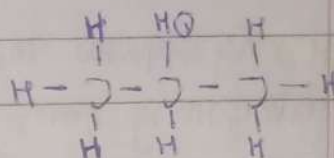 H HO H
H - C - C - C - H
H H H